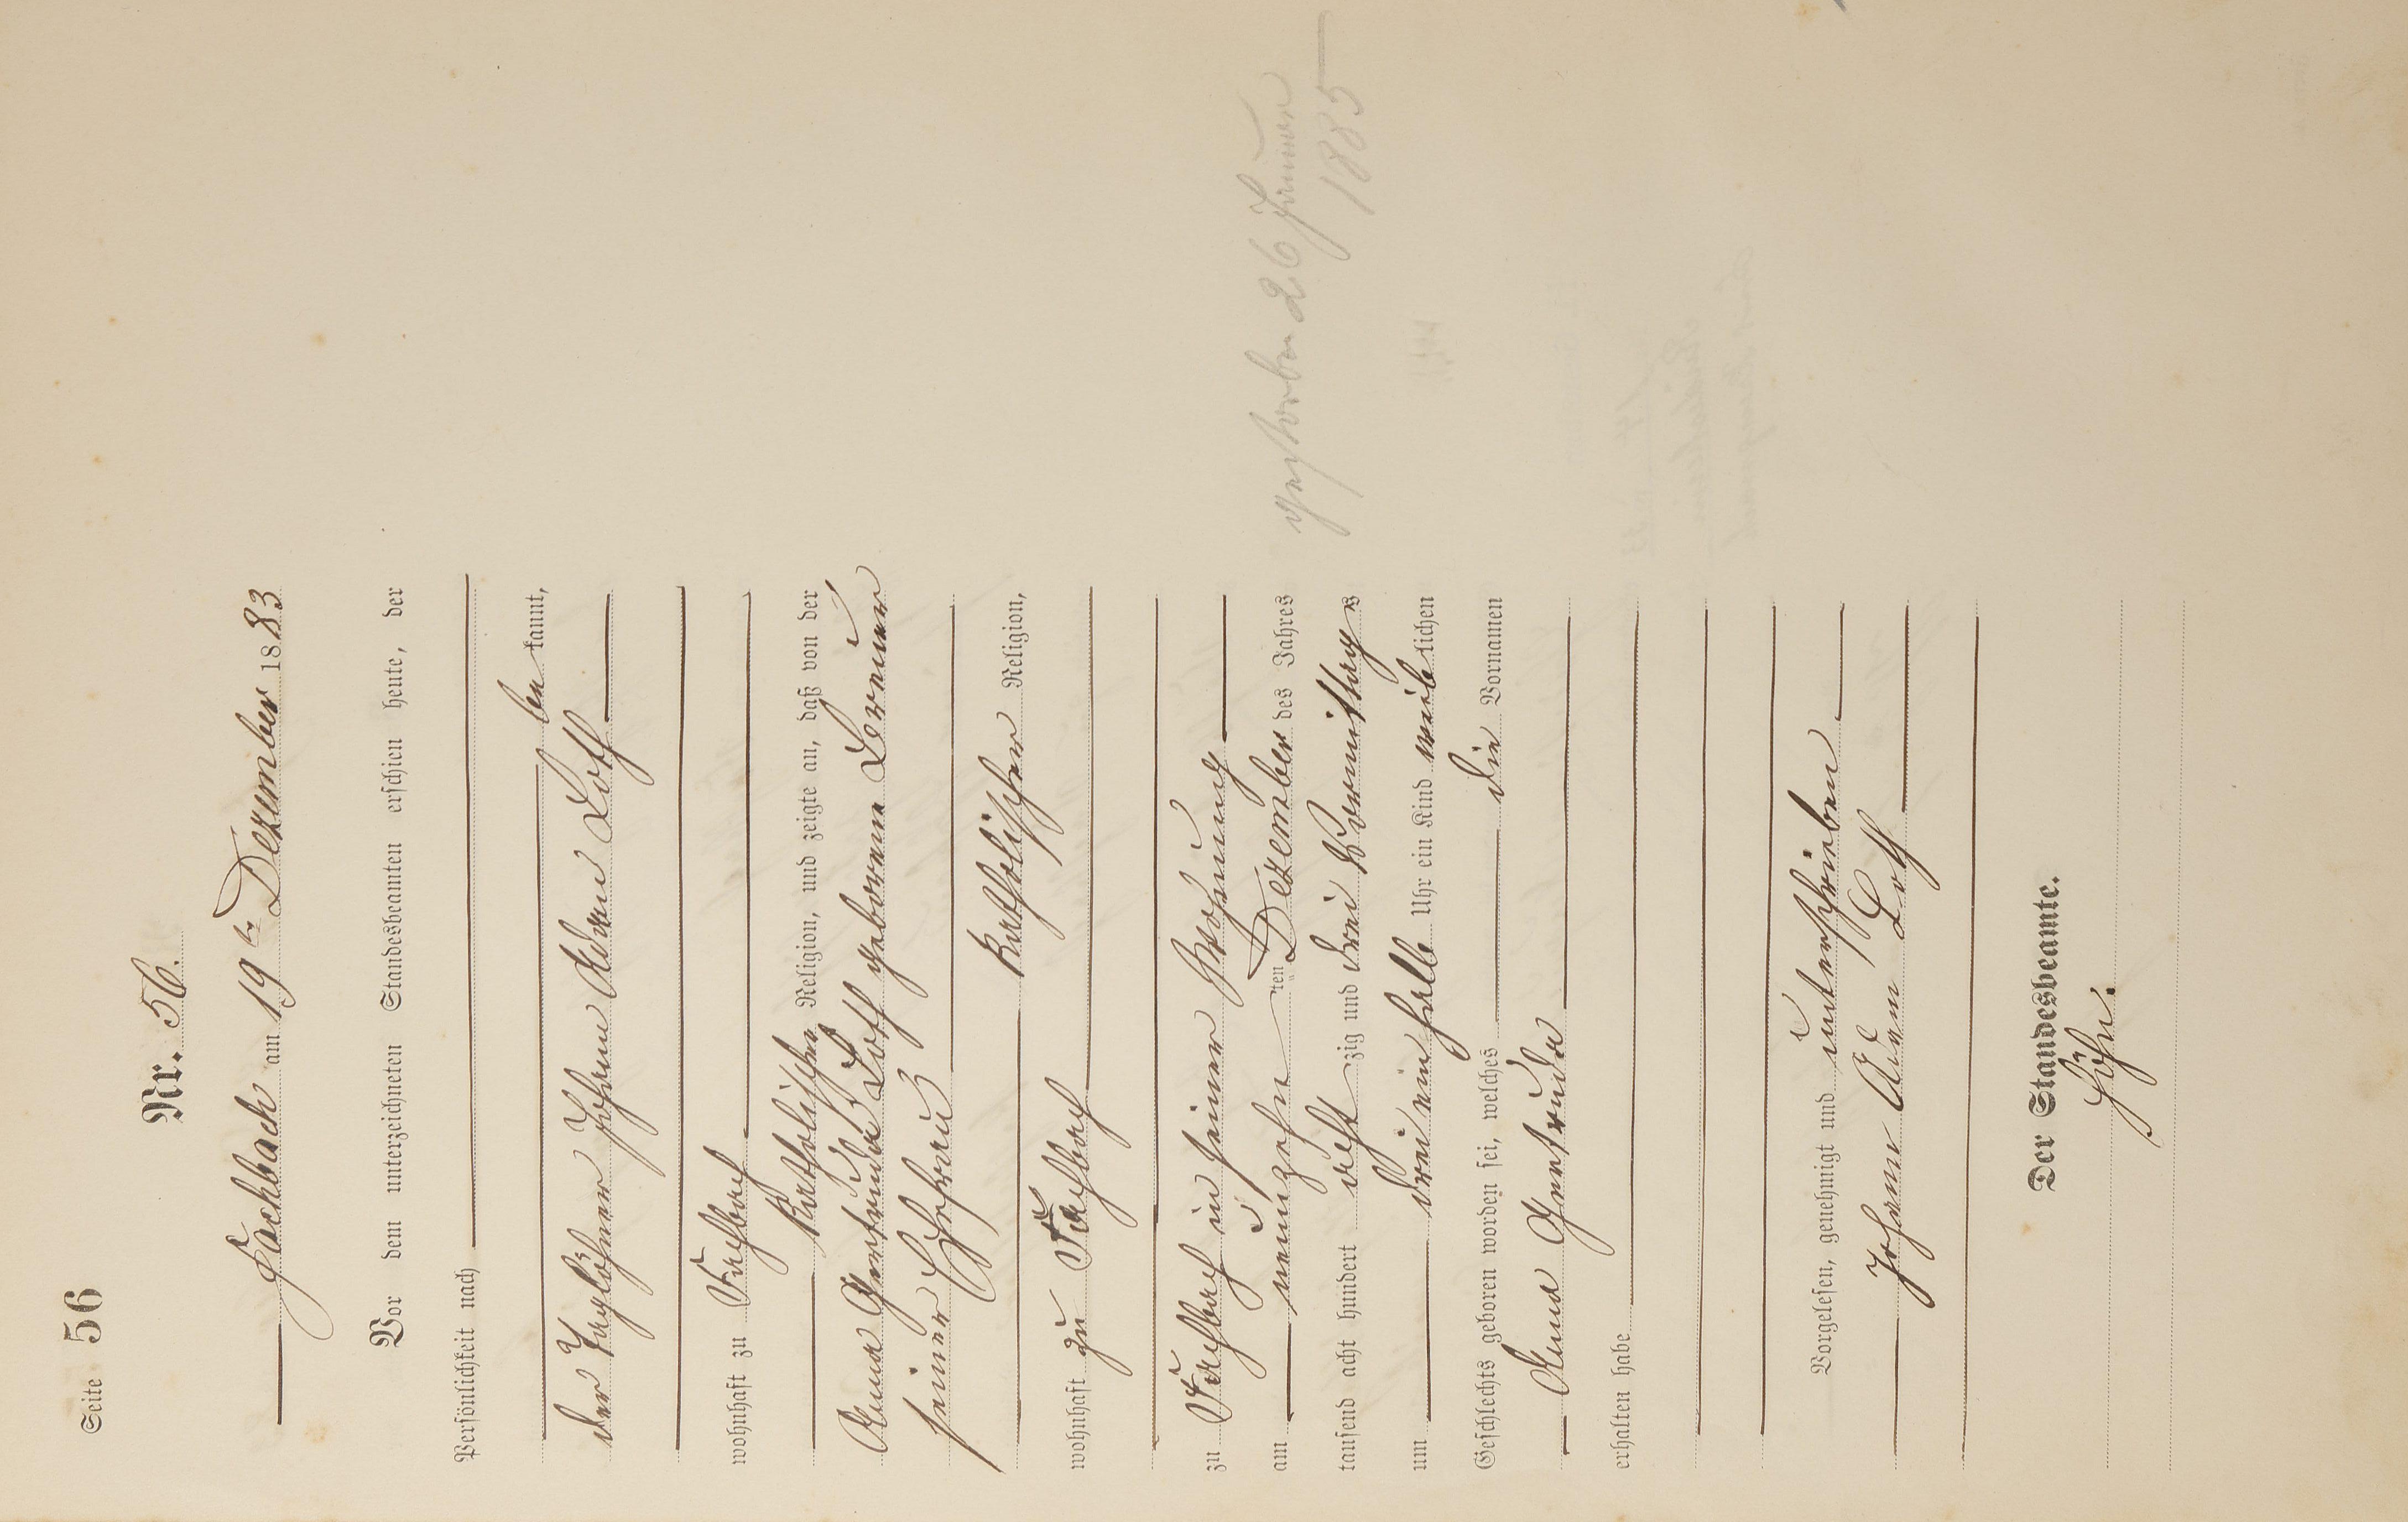 Seite 56
Nr. 56.
Fachbach am 19ten Dezember 1883
Vor dem unterzeichneten Standesbeamten erschien heute, der
Persönlichkeit nach
bekannt,
der Taglöhner Johann Adam Loth
wohnhaft zu Fachbach
katholischer Religion, und zeigte an, daß von der
Anna Gertruda Loth geborene
seiner Ehefrau
katholischer Religion,
wohnhaft zu Fachbach
zu Fachbach in seiner Wohnung
am neunzehnten Dezember des Jahres
tausend acht hundert achtzig und drei Vormittags
um drei ein halb Uhr ein Kind weiblichen
Geschlechts geboren worden sei, welches die Vornamen
Anna Gertruda
erhalten habe
Vorgelesen, genehmigt und unterschrieben
Johann Adam Loth
Der Standesbeamte.
Höhn.
gestorben 26 Januar
1885